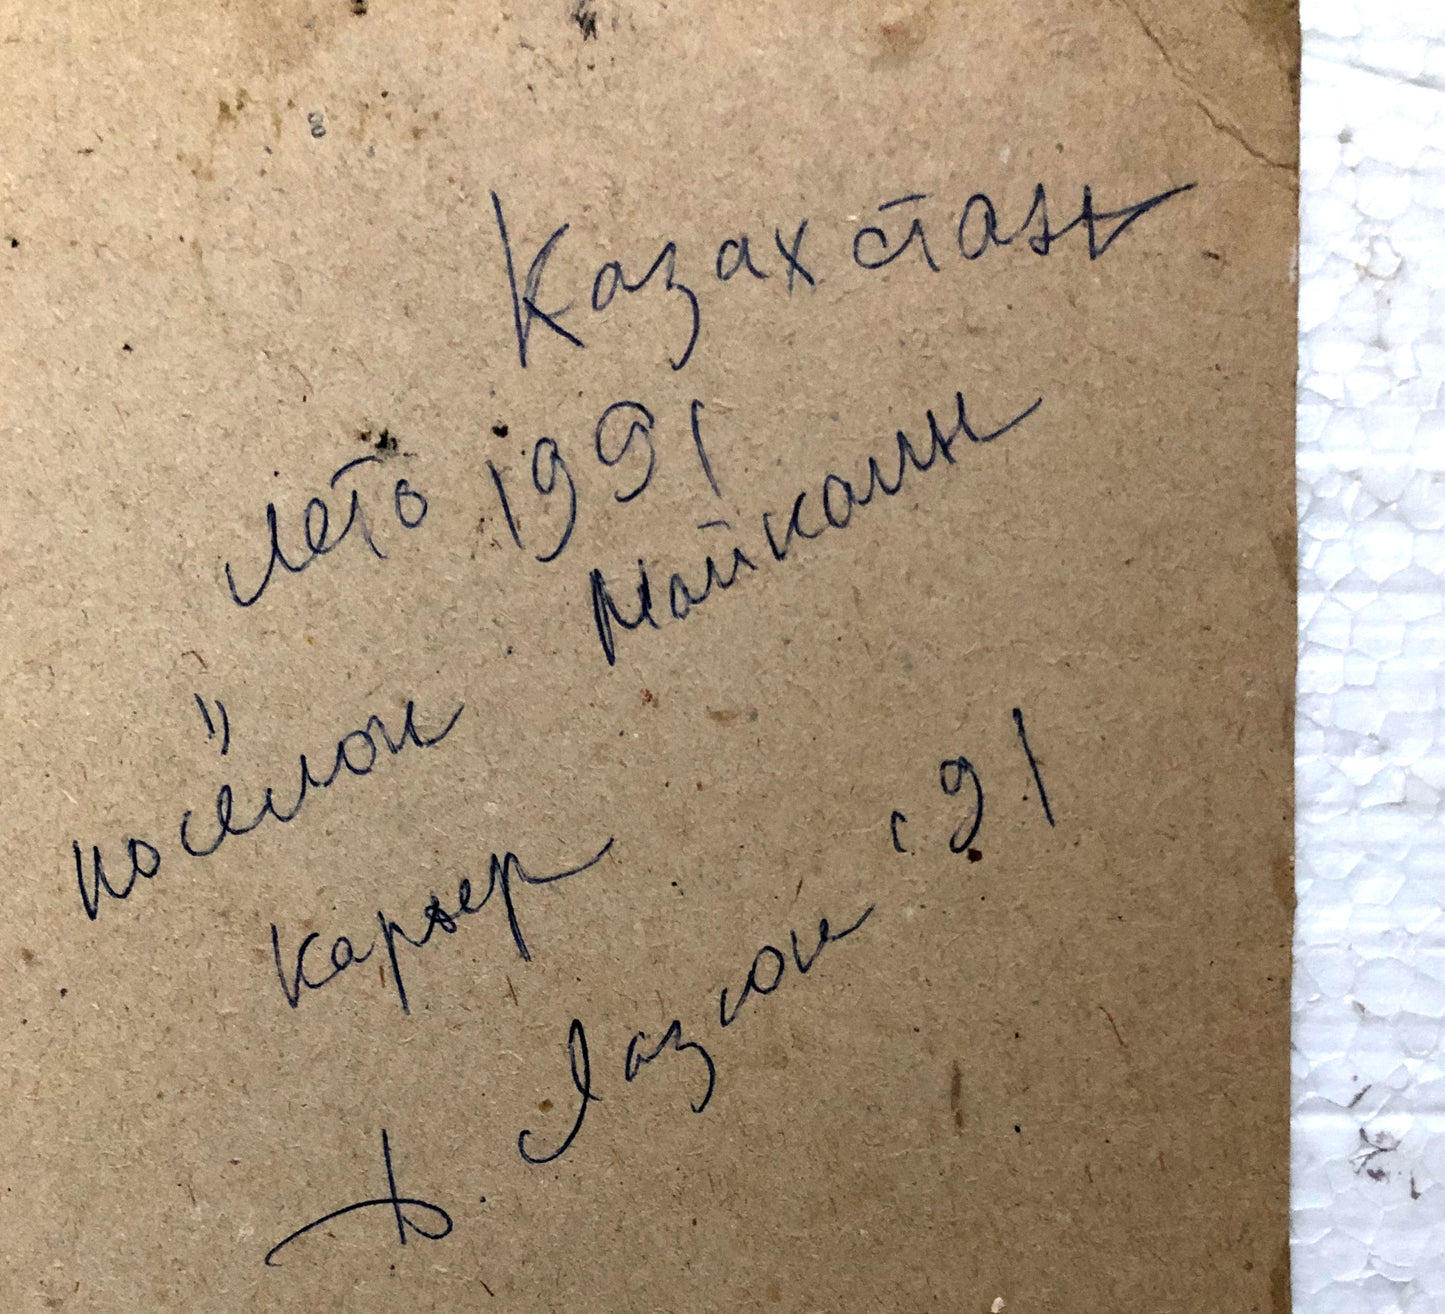 Казахстан
лето 1991
Майкаин
посёлок
Карьер
'91